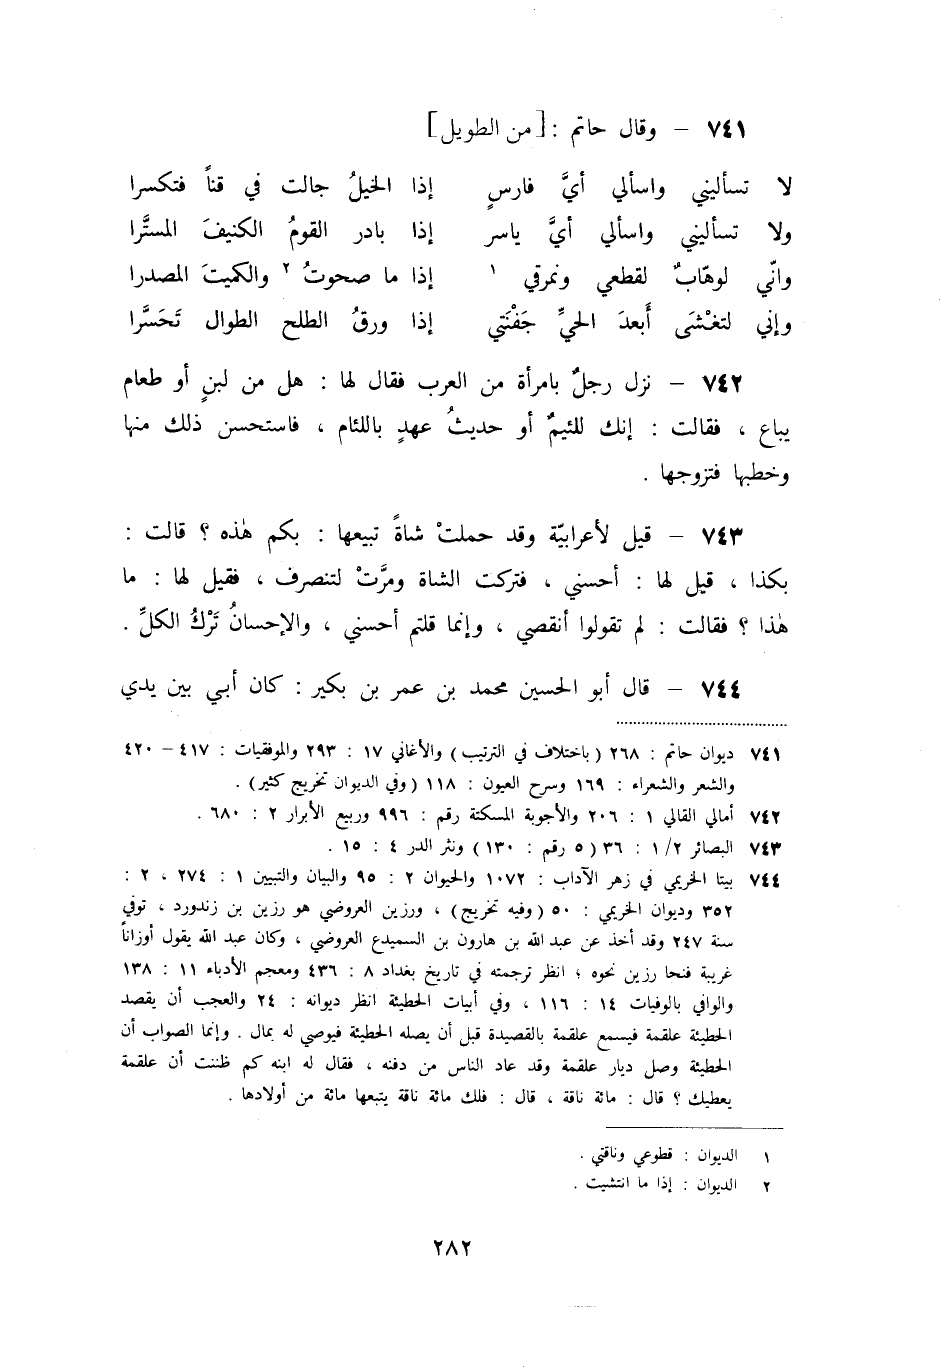 ٧٤١ – وقال حاتم : [ من الطويل ]
لا تسأليني واسألي أيَّ فارسٍ إذا الخيلُ جالت في قناً فتكسرا
ولا تسأليني واسألي أيَّ ياسر إذا بادر القومُ الكنيفَ المستَّرا
وانّي لوهّابٌ لقطعي ونمرقي ١ إذا ما صحوتُ ٢ والكميتَ المصدرا
وإني لتغْشَى أَبعدَ الحيِّ جَفْنَتي إذا ورقُ الطلح الطوال تَحَسَّرا
٧٤٢ – نزل رجلٌ بامرأة من العرب فقال لها : هل من لبنٍ أو طعام
يباع ، فقالت : إنك للئيمٌ أو حديثُ عهدٍ باللئام ، فاستحسن ذلك منها
وخطبها فتزوجها .
٧٤٣ – قيل لأعرابيّة وقد حملتْ شاةً تبيعها : بكم هٰذه ؟ قالت :
بكذا ، قيل لها : أحسني ، فتركت الشاة ومرَّتْ لتنصرف ، فقيل لها : ما
هٰذا ؟ فقالت : لم تقولوا أنقصي ، وإنما قلتم أحسني ، والإحسانُ تَرْكُ الكلِّ .
٧٤٤ – قال أبو الحسين محمد بن عمر بن بكير : كان أبي بين يدي
٧٤١ ديوان حاتم : ٢٦٨ ( باختلاف في الترتيب ) والأغاني ١٧ : ٢٩٣ والموفقيات : ٤١٧ – ٤٢٠
والشعر والشعراء : ١٦٩ وسرح العيون : ١١٨ ( وفي الديوان تخريج كثير ) .
٧٤٢ أمالي القالي ١ : ٢٠٦ والأجوبة المسكتة رقم : ٩٩٦ وربيع الأبرار ٢ : ٦٨٠ .
٧٤٣ البصائر ٢/ ١ : ٣٦ ( ٥ رقم : ١٣٠ ) ونثر الدر ٤ : ١٥ .
٧٤٤ بيتا الخريمي في زهر الآداب : ١٠٧٢ والحيوان ٢ : ٩٥ والبيان والتبيين ١ : ٢٧٤ ، ٢ :
٣٥٢ وديوان الخريمي : ٥٠ ( وفيه تخريج ) ، ورزين العروضي هو رزين بن زندورد ، توفي
سنة ٢٤٧ وقد أخذ عن عبد الله بن هارون بن السميدع العروضي ، وكان عبد الله يقول أوزاناً
غريبة فنحا رزين نحوه ؛ انظر ترجمته في تاريخ بغداد ٨ : ٤٣٦ ومعجم الأدباء ١١ : ١٣٨
والوافي بالوفيات ١٤ : ١١٦ ، وفي أبيات الحطيئة انظر ديوانه : ٢٤ والعجب أن يقصد
الحطيئة علقمة فيسمع علقمة بالقصيدة قبل أن يصله الحطيئة فيوصي له بمال . وإنما الصواب أن
الحطيئة وصل ديار علقمة وقد عاد الناس من دفنه ، فقال له ابنه كم ظننت أن علقمة
يعطيك ؟ قال : مائة ناقة ، قال : فلك مائة ناقة يتبعها مائة من أولادها .
١ الديوان : قطوعي وناقتي .
٢ الديوان : إذا ما انتشيت .
٢٨٢